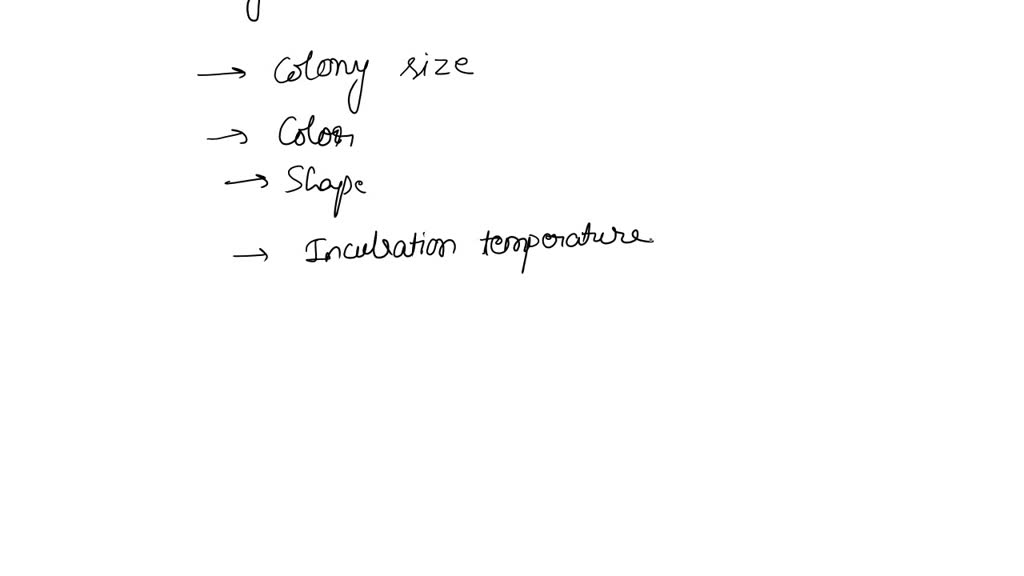 → Colony size
→ Color
→ Shape
→ Incubation temperature